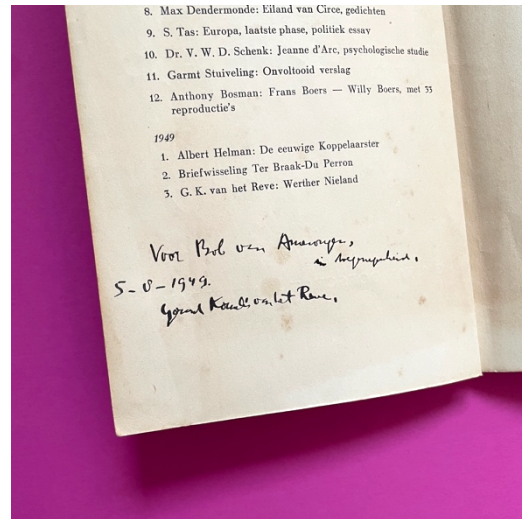 8. Max Dendermonde: Eiland van Circe, gedichten
9. S. Tas: Europa, laatste phase, politiek essay
10. Dr. V. W. D. Schenk: Jeanne d'Arc, psychologische studie
11. Garmt Stuiveling: Onvoltooid verslag
12. Anthony Bosman: Frans Boers — Willy Boers, met 33
reproductie's
1949
1. Albert Helman: De eeuwige Koppelaarster
2. Briefwisseling Ter Braak-Du Perron
3. G. K. van het Reve: Werther Nieland
Voor Bob van
in
5-8-1949.
van het Reve.